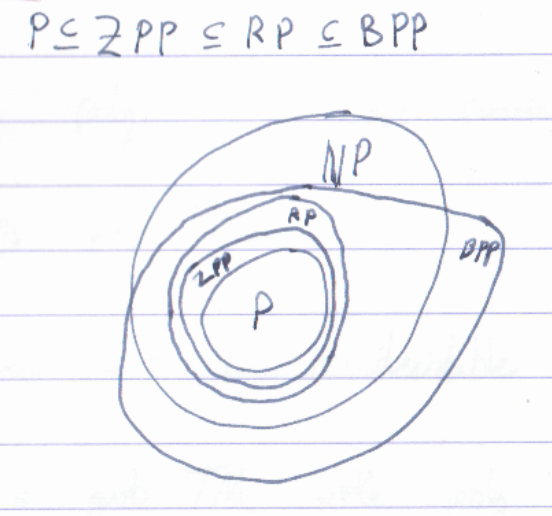 P ⊆ ZPP ⊆ RP ⊆ BPP
NP
RP
BPP
ZPP
P